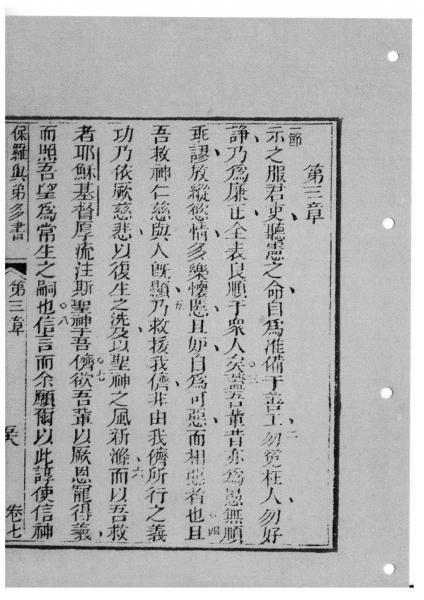 第三章
一節
示之服君吏聽憲之命自為准備于善工勿冤枉人勿好
二
諍乃為廉正全表良順于衆人矣蓋吾輩昔亦為愚無順
三
乖謬放縱慾情多樂懷惡且妒自為可惡而相惡者也且
四
吾救神仁慈與人旣顯乃救援我儕非由我儕所行之義
五
功乃依厥慈悲以復生之洗及以聖神之風新滌而以吾救
六
者耶穌基督厚流注斯聖神于吾儕欲吾輩以厥恩寵得義
七
而照吾望為常生之嗣也信言而余願爾以此諄使信神
八
保羅與弟多書
第三章
卷七